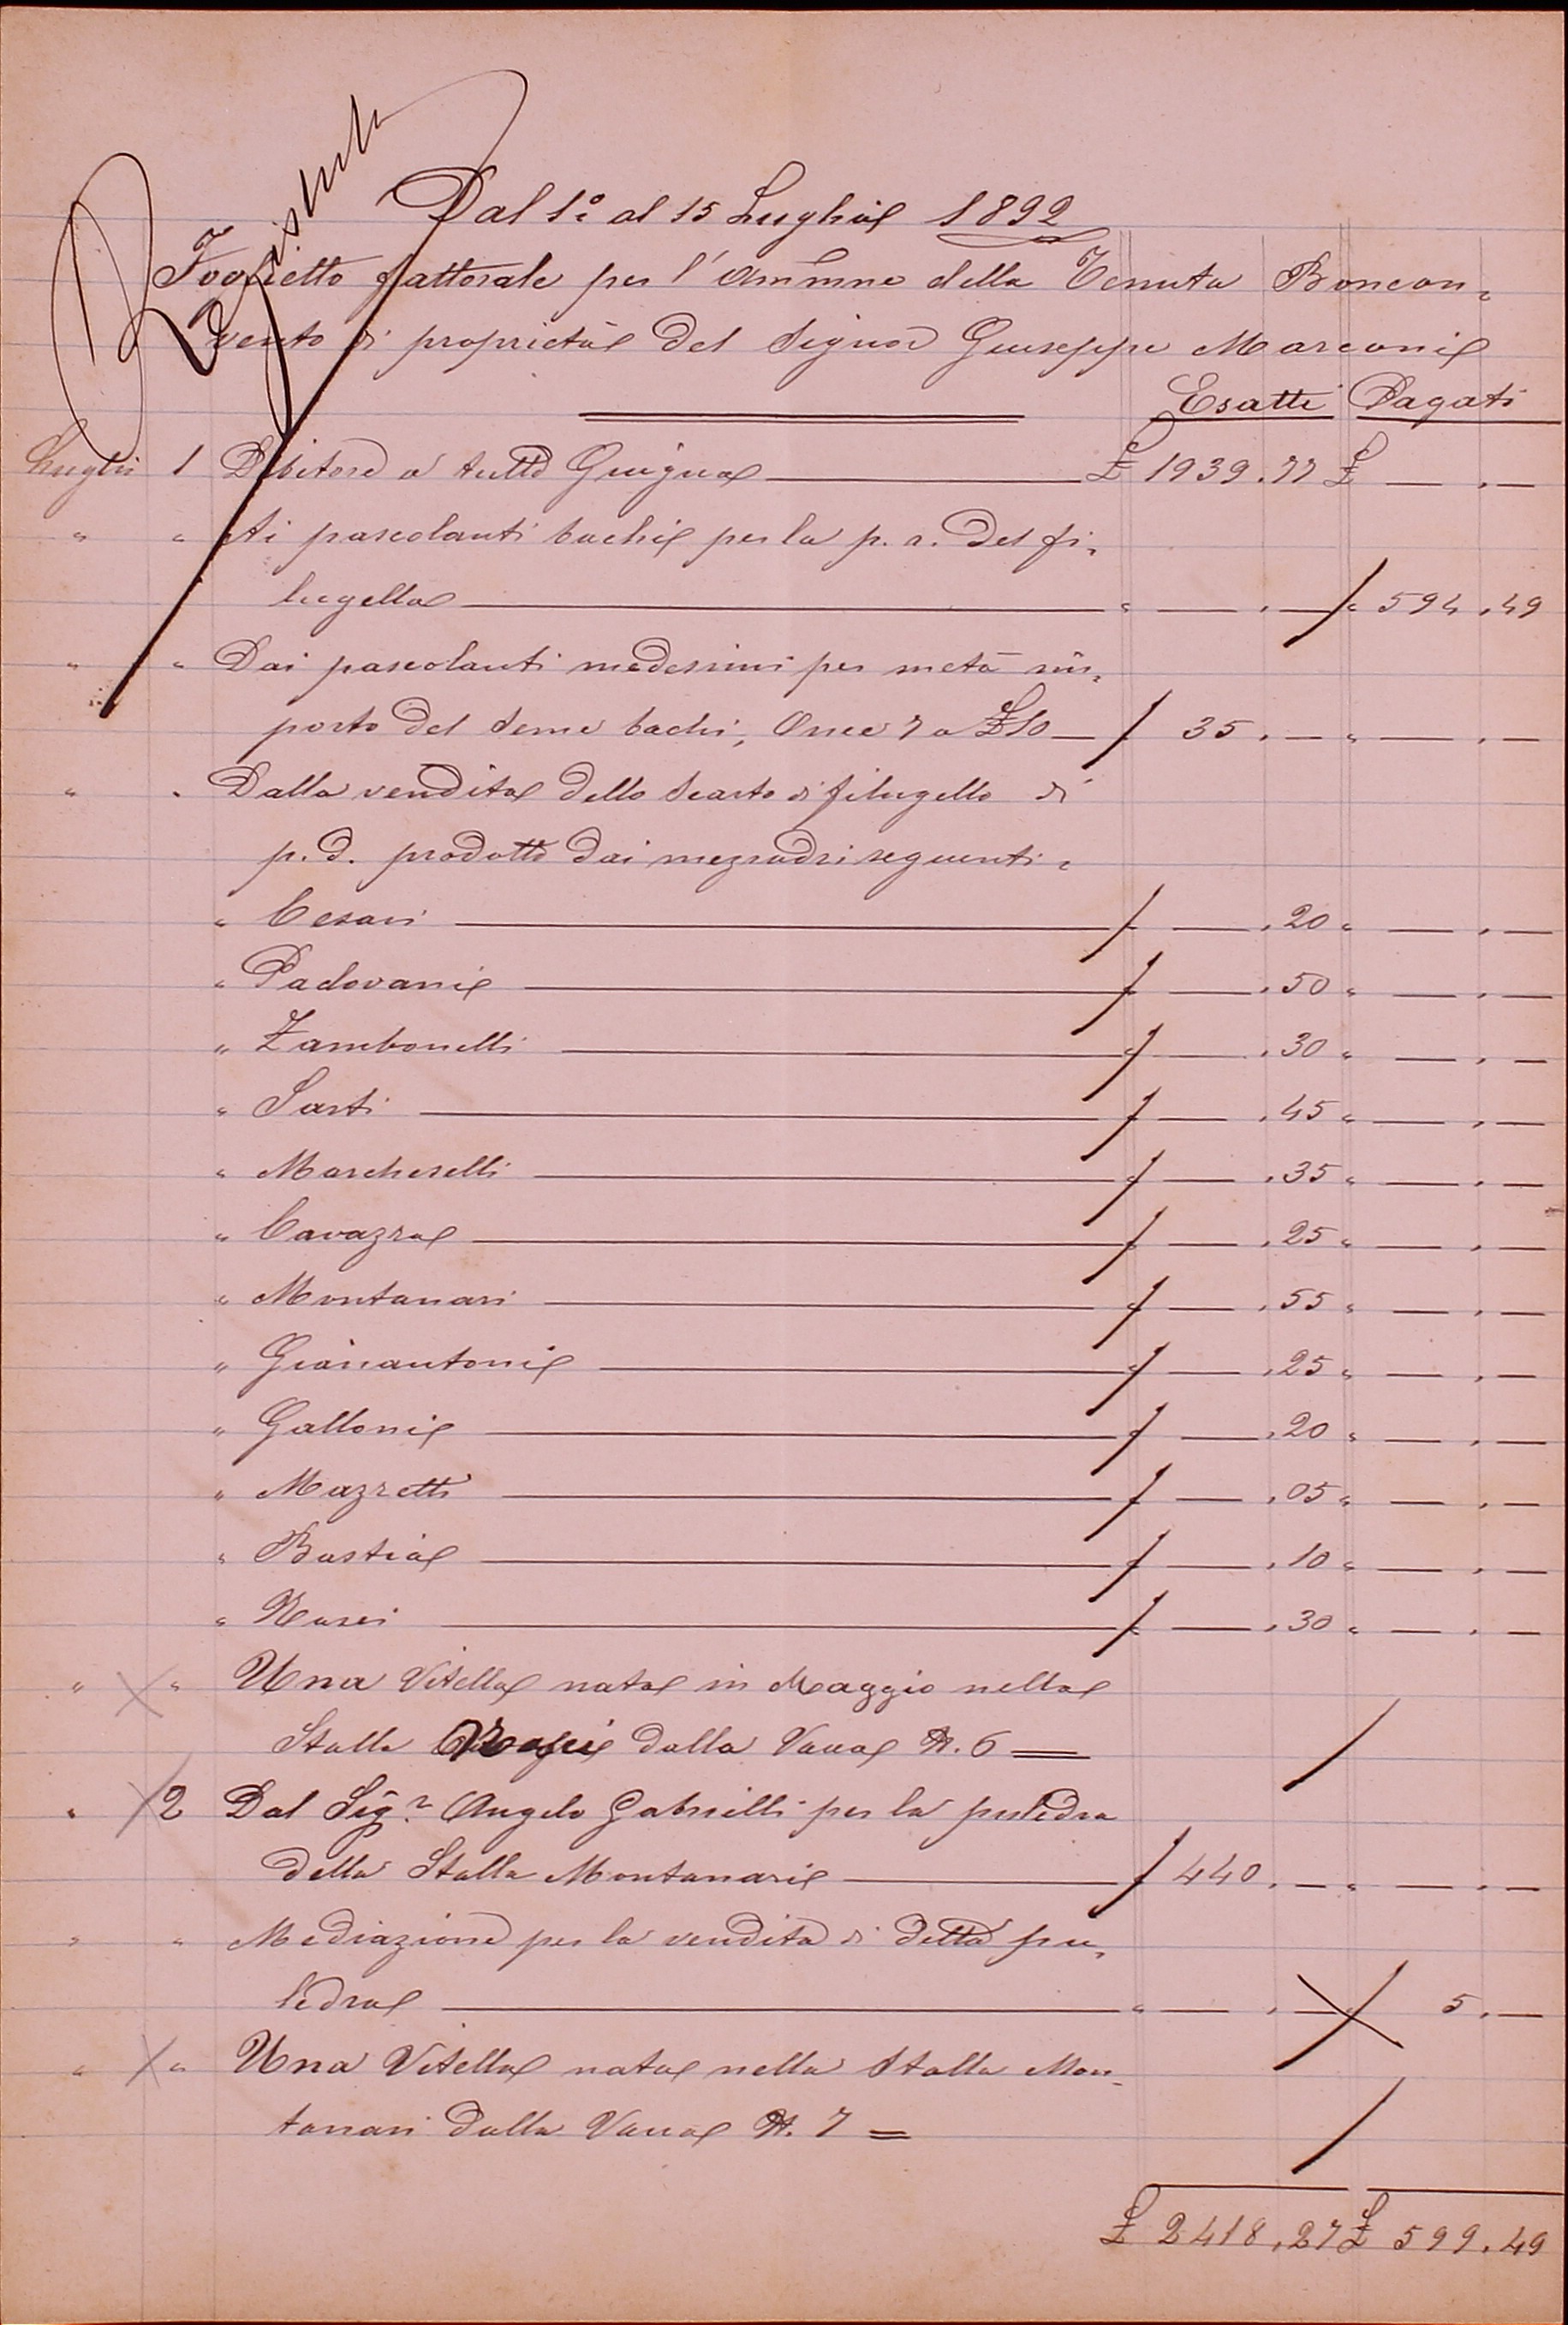 Registrato
Dal 1° al 15 Luglio 1892
Foglietto fattorale per l'Ammne della Tenuta Boncon=
vento di proprietà del Signor Giuseppe Marconi
Esatti Pagati
Luglio 1 Debitore a tutto Giugno £ 1939.77 £ — . —
" " Ai pascolanti bachi per la p. r. del fi=
lugello " — . — " 594.49
" " Dai pascolanti medesimi per metà im=
porto del seme bachi, Once 7 a £ 10 — " 35. — " — . —
" " Dalla vendita dello scarto di filugello di
p. d. prodotto dai mezzadri seguenti =
" Cesari " — .20 " — . —
" Padovani " — .50 " — . —
" Zambonelli " — .30 " — . —
" Sarti " — .45 " — . —
" Marcheselli " — .35 " — . —
" Cavazza " — .25 " — . —
" Montanari " — .55 " — . —
" Gianantoni " — .25 " — . —
" Galloni " — .20 " — . —
" Mazzetti " — .05 " — . —
" Bastia " — .10 " — . —
" Nasci " — .30 " — . —
" " Una Vitella nata in Maggio nella
Stalla dalla Vacca N. 6 =
" 2 Dal Sigr. Angelo Gabrielli per la puledra
della Stalla Montanari " 440. — " — . —
" " Mediazione per la vendita di detta pu=
ledra " — . — " 5. —
" " Una Vitella nata nella Stalla Mon=
tanari dalla Vacca N. 7 =
£ 2418.27 £ 599.49